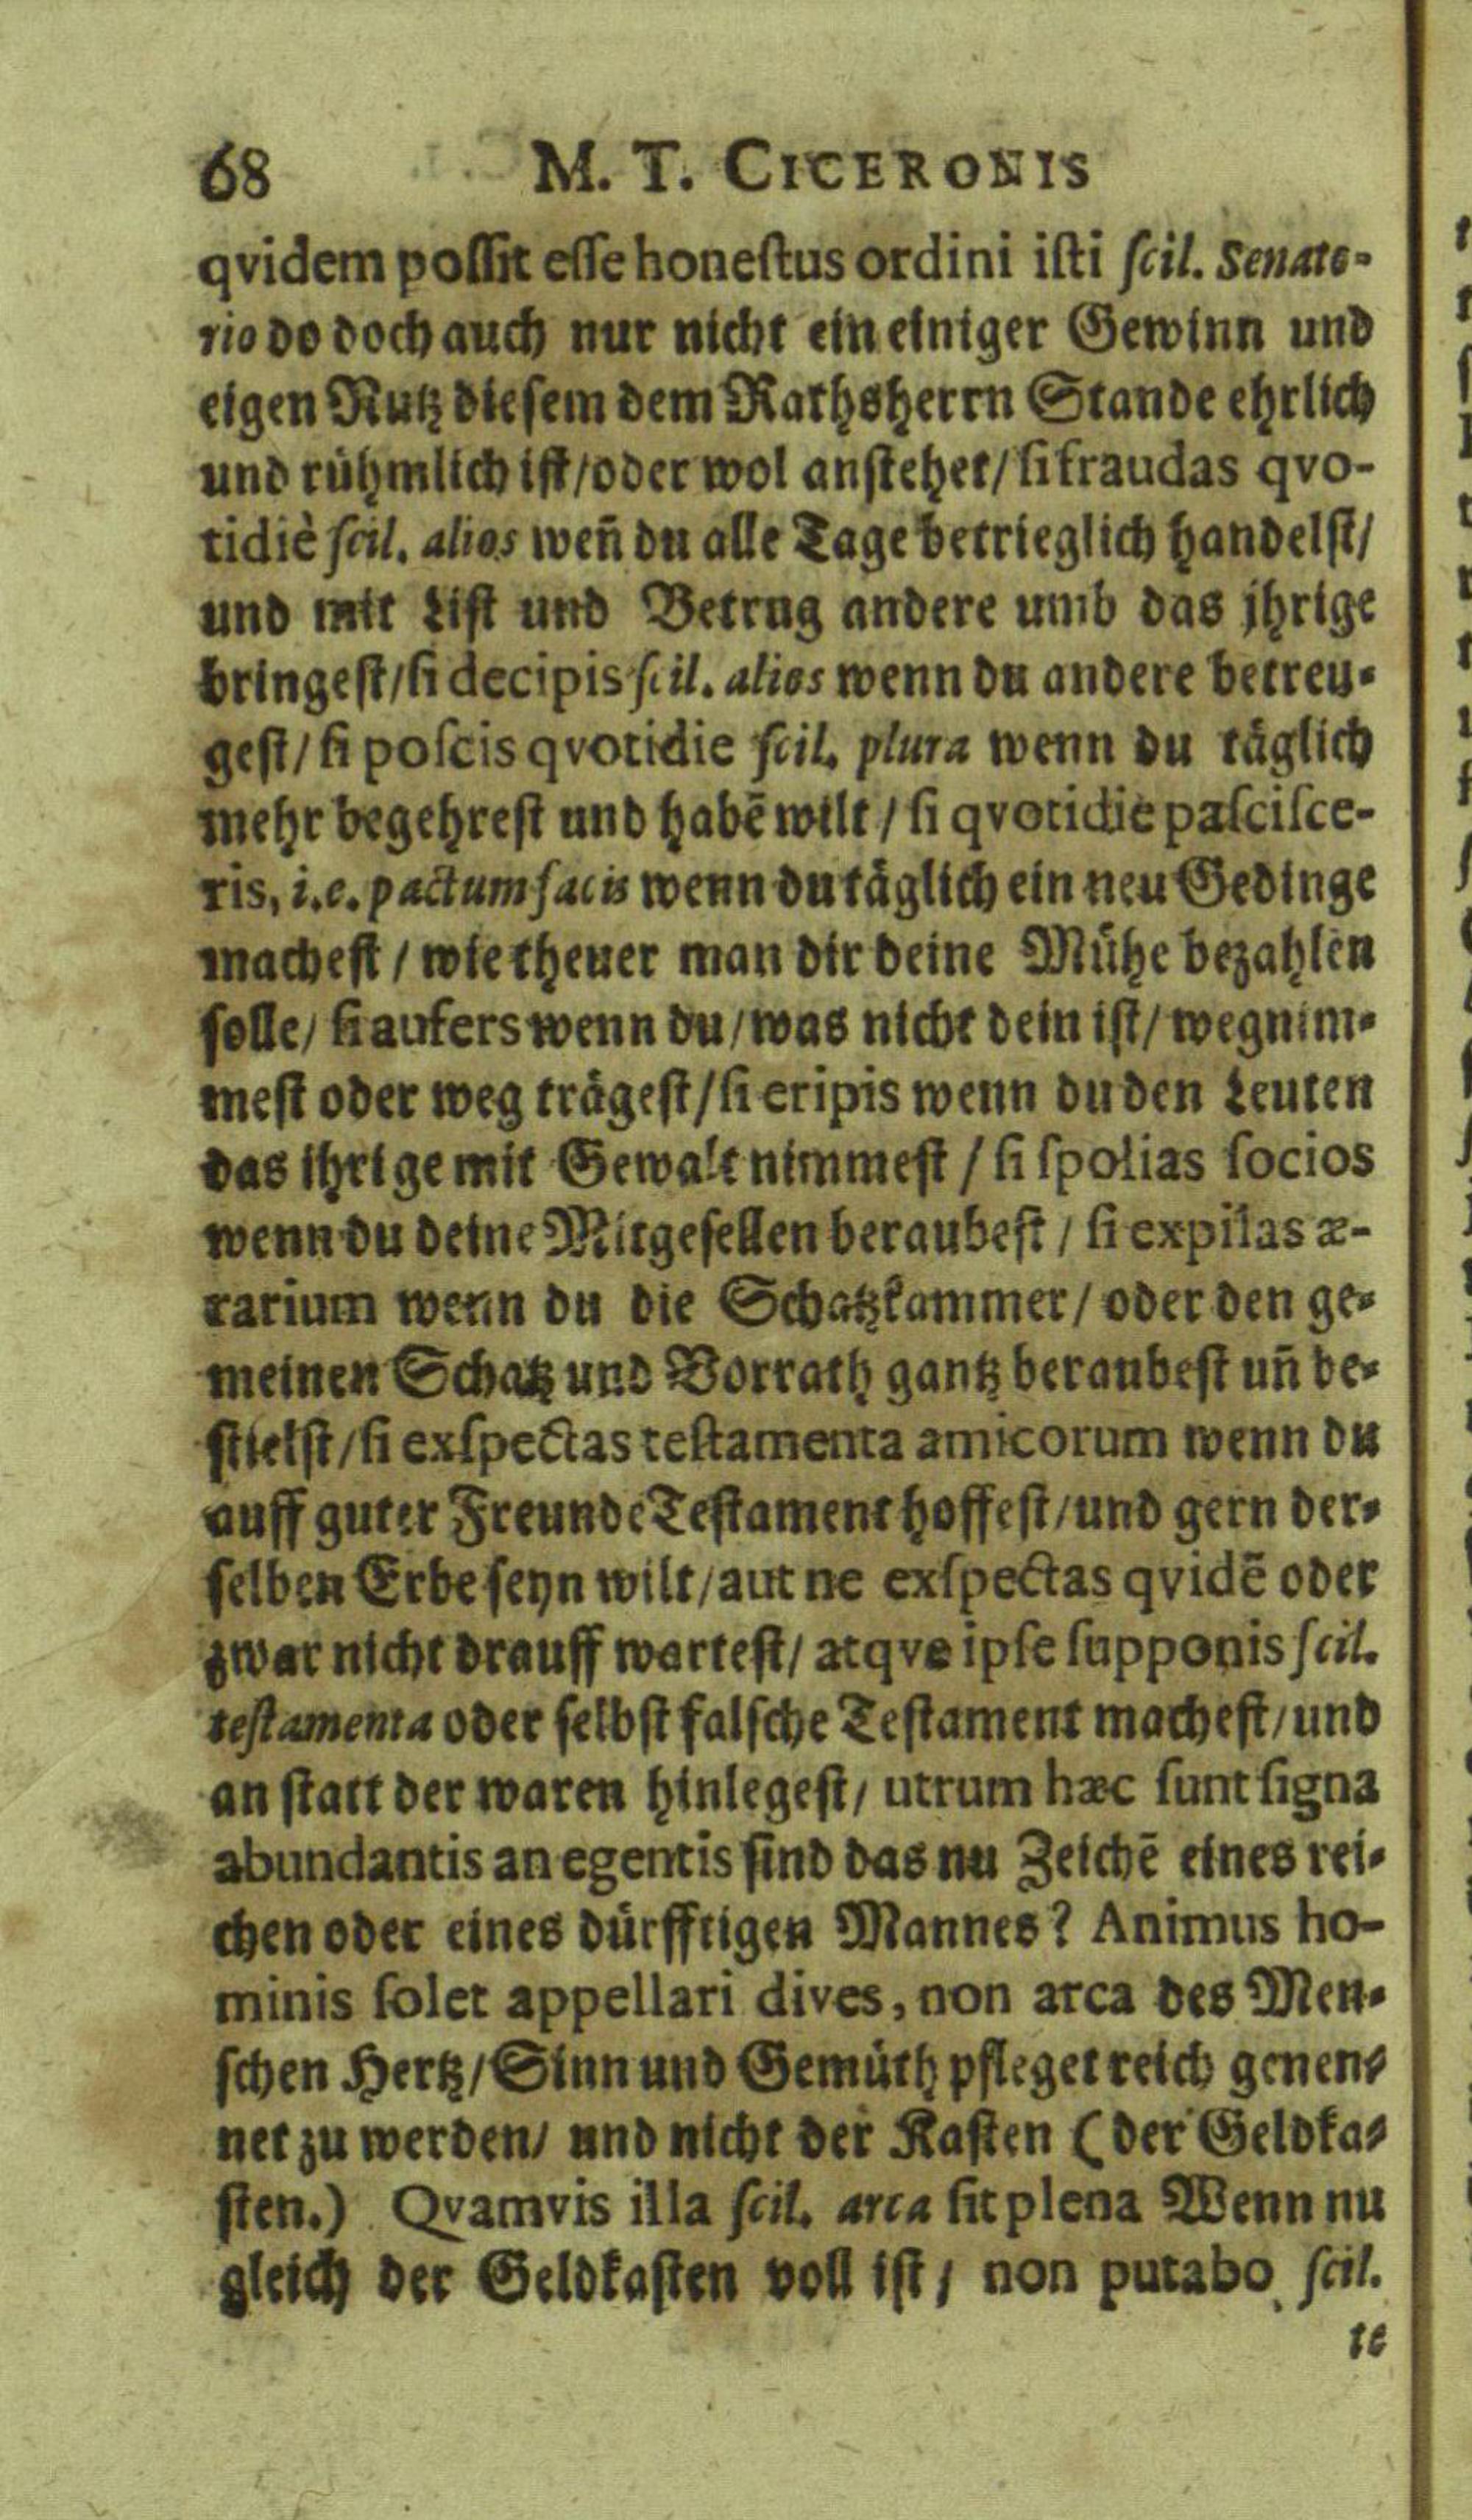 68 M. T. CICERONIS
qvidem poſſit eſſe honeſtus ordini iſti ſcil. Senato-
rio do doch auch nur nicht ein einiger Gewinn und
eigen Nutz dieſem dem Rathsherrn Stande ehrlich
und rühmlich iſt/oder wol anſtehet/ ſi fraudas qvo-
tidiè ſcil. alios weñ du alle Tage betrieglich handelſt/
und mit Liſt und Betrug andere umb das jhrige
bringeſt/ſi decipis ſcil. alios wenn du andere betreu-
geſt/ ſi poſcis qvotidie ſcil. plura wenn du täglich
mehr begehreſt und habē wilt / ſi qvotidie paſciſce-
ris, i.e. pactum facis wenn du täglich ein neu Gedinge
macheſt / wie theuer man dir deine Mühe bezahlen
ſolle/ ſi aufers wenn du/was nicht dein iſt/ wegnim-
meſt oder weg trägeſt/ſi eripis wenn du den Leuten
das ihrige mit Gewalt nimmeſt / ſi ſpolias ſocios
wenn du deine Mitgeſellen beraubeſt / ſi expilas æ-
rarium wenn du die Schatzkammer/ oder den ge-
meinen Schatz und Vorrath gantz beraubeſt uñ be-
ſtielſt/ſi exſpectas teſtamenta amicorum wenn du
auff guter Freunde Teſtament hoffeſt/und gern der-
ſelben Erbe ſeyn wilt/aut ne exſpectas qvidē oder
zwar nicht drauff warteſt/ atqve ipſe ſupponis ſcil.
teſtamenta oder ſelbſt falſche Teſtament macheſt/und
an ſtatt der waren hinlegeſt/ utrum hæc ſunt ſigna
abundantis an egentis ſind das nu Zeichē eines rei-
chen oder eines dürfftigen Mannes? Animus ho-
minis ſolet appellari dives, non arca des Men-
ſchen Hertz/Sinn und Gemüth pfleget reich genen-
net zu werden/ und nicht der Kaſten (der Geldka-
ſten.) Qvamvis illa ſcil. arca ſit plena Wenn nu
gleich der Geldkaſten voll iſt/ non putabo ſcil.
te